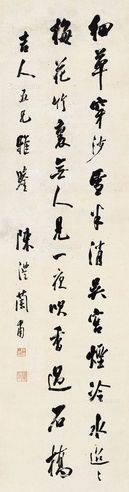 細草穿沙雪半消吳宮煙冷水迢〻
梅花竹裏無人見一夜吹香過石橋
吉人五兄雅鑒 陳澧蘭甫